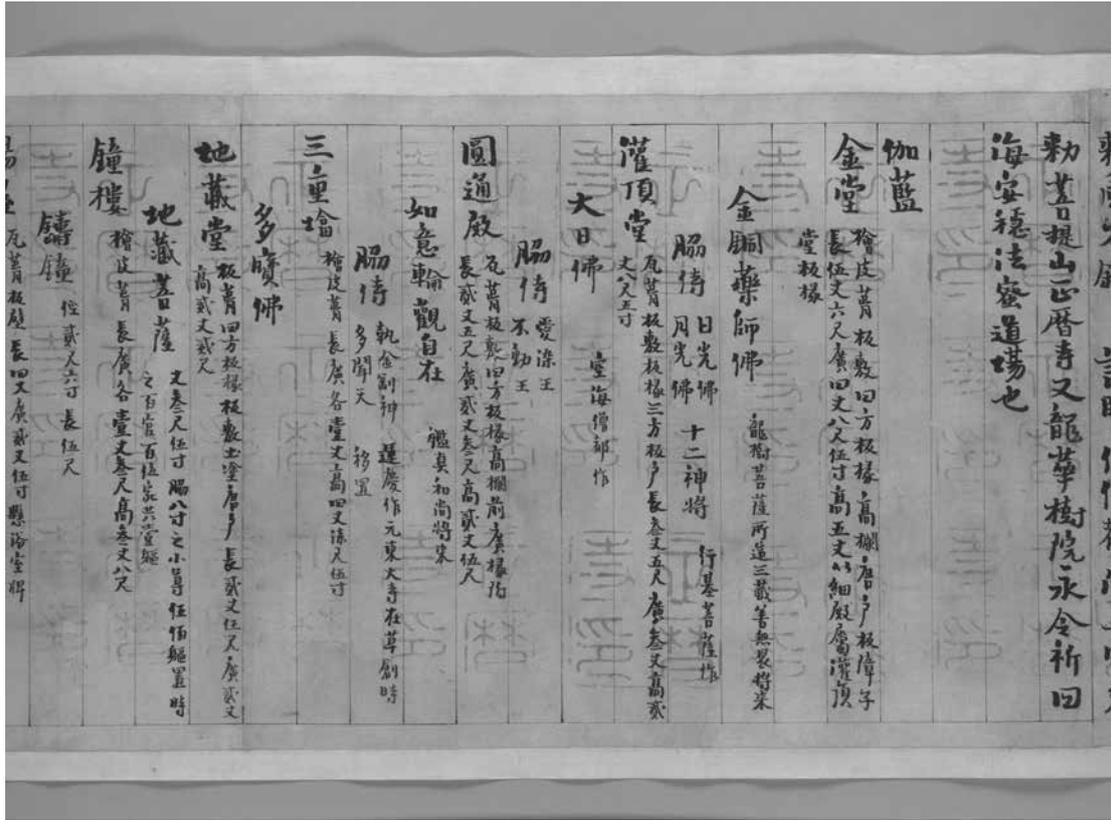 勅菩提山正暦寺又龍華樹院永令祈四
海安穏法蜜道場也
伽藍
金堂 檜皮葺板敷四方板椽高欄唐戸板障子
長伍丈六尺廣四丈八尺伍寸高五丈以細殿屬灌頂
堂板椽
金銅藥師佛 龍樹菩薩所造三藏善無畏将来
脇侍 日光佛 月光佛 十二神将 行基菩薩作
灌頂堂 瓦葺板敷板椽三方板戸長叁丈五尺廣叁丈高貳
丈八尺五寸
大日佛 空海僧都作
脇侍 愛染王 不動王
圓通殿 瓦葺板敷四方板椽高欄前廣椽
長貳丈五尺廣貳丈叁尺高貳丈伍尺
如意輪觀自在 鑑真和尚将来
脇侍 執金剛神 多聞天 運慶作元東大寺在草創時
移置
三重塔 檜皮葺長廣各壹丈高四丈漆尺伍寸
多寶佛
地藏堂 板葺四方板椽板敷土塗唐戸長貳丈伍尺廣貳丈
高貳丈貳尺
地藏菩薩 丈叁尺伍寸脇八寸之小尊伍佰軀置時
之百官百伍家共壹軀
鐘樓 檜皮葺長廣各壹丈叁尺高叁丈八尺
鑄鐘 径貳尺六寸長伍尺
瓦葺板壁長四丈廣貳丈伍寸懸浴室牌